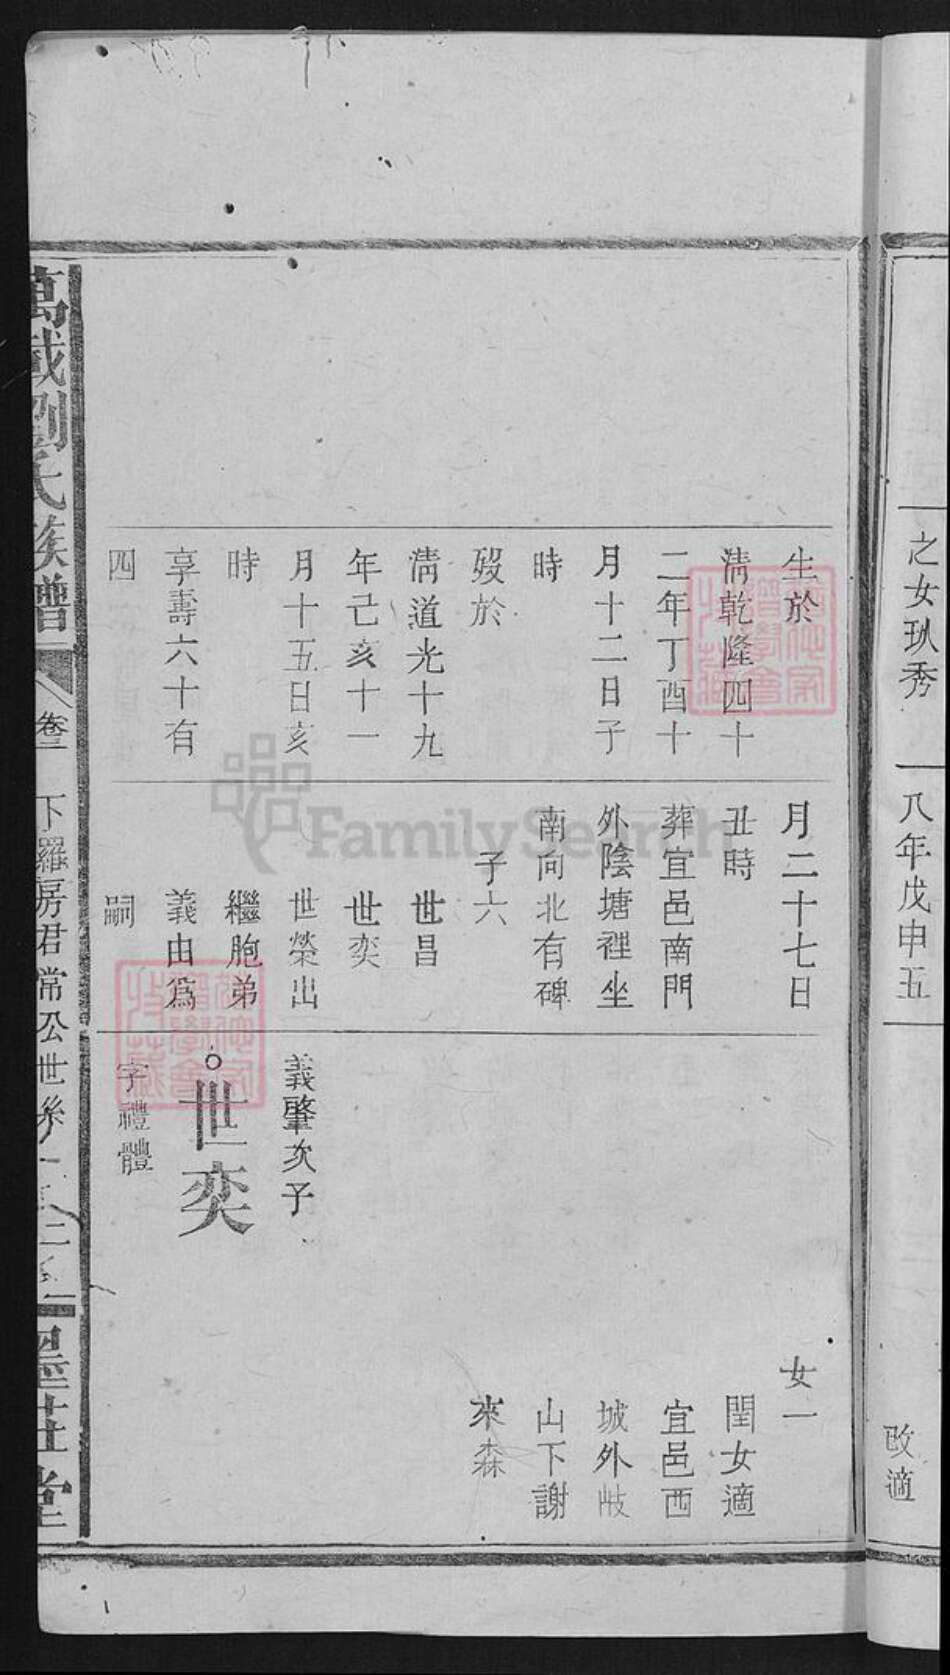 之女玐秀
八年戊申五
改適
生於
淸乾隆四十
二年丁酉十
月十二日子
時
歿於
淸道光十九
年己亥十一
月十五日亥
時
享壽六十有
四
月二十七日
丑時
葬宜邑南門
外陰塘裡坐
南向北有碑
子六
世昌
世奕
世榮出
繼胞弟
義由爲
嗣
義肇次子
世奕
字禮體
女一
閏女適
宜邑西
城外岐
山下謝
來森
萬載劉氏族譜
卷三
下羅房君常公世系
墨莊堂
FamilySearch